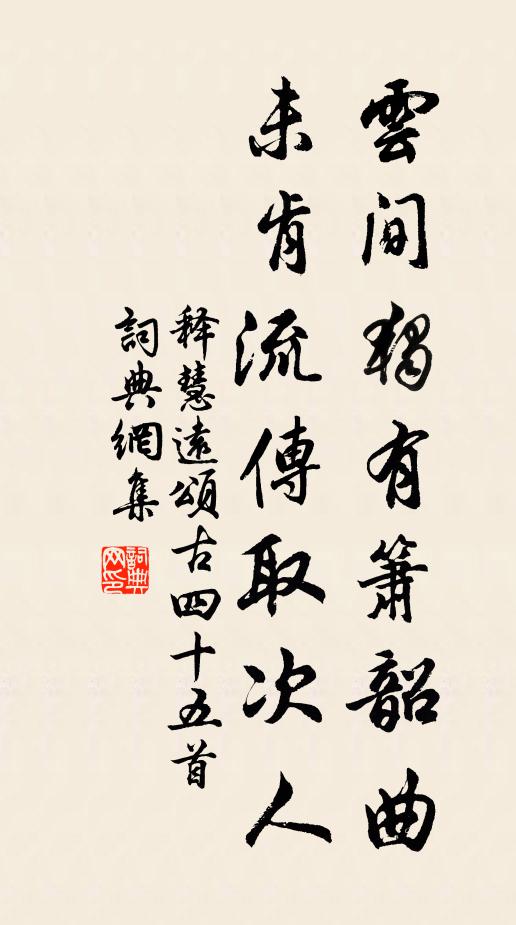 雲間獨有簫韶曲
未肯流傳取次人
释慧遠頌古四十五首
詞典網集
詞典
网印